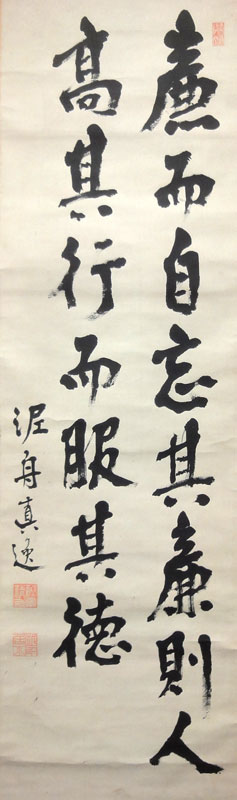 廉而自忘其廉則人
高其行而服其徳
泥舟真逸